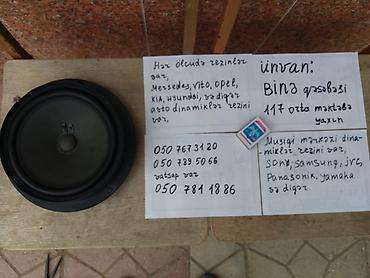 Hər ölçüdə rezinlər
var,
Mersedes, Vito, Opel,
KIA, Hyundai, və digər
avto dinamiklər rezini
var,
ünvan:
Binə qəsəbəsi
117 orta məktəbə
yaxın
050 767 31 20
050 789 50 66
vatsap var
050 781 18 86
Musiqi mərkəzi dina-
miklər rezini var,
SONY, Samsung, jvc,
Panasonik, yamaha
və digər